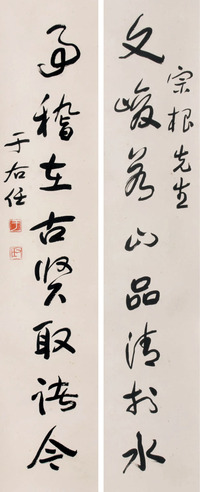 宗根先生
文峻若山品清於水
事稽在古賢取諸今
于右任